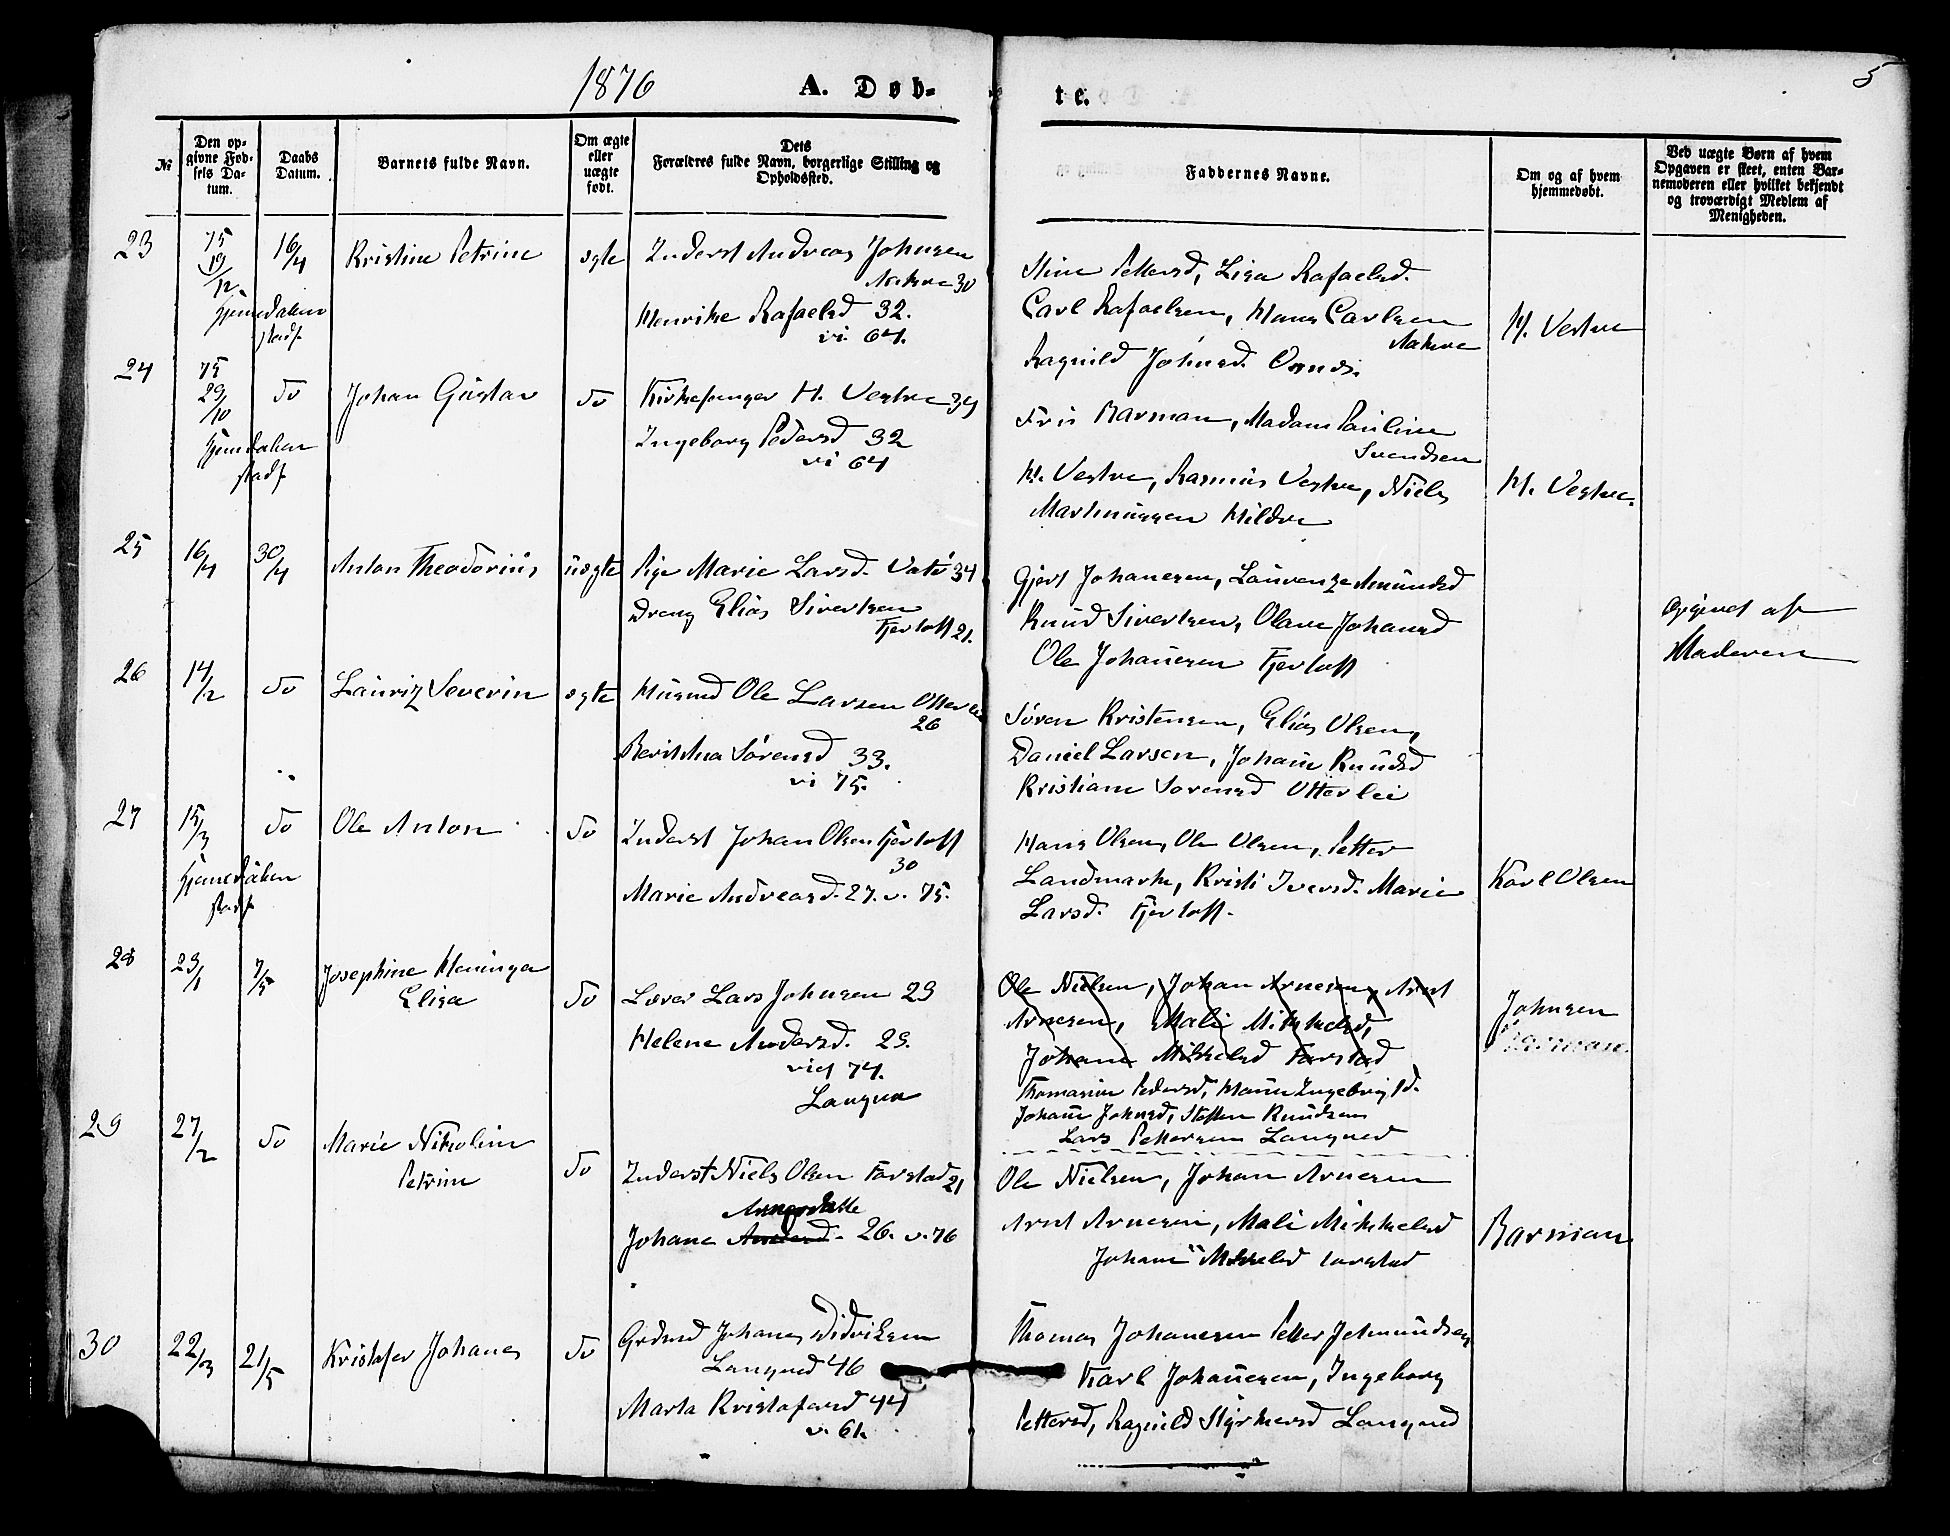 1876
A. Døb-
te.
5
№
Den op-
givne Fød-
sels Da-
tum.
Daabs
Datum.
Barnets fulde Navn.
Om ægte
eller
uægte
født.
Dets
Forældres fulde Navn, borgerlige Stilling og
Opholdssted.
Faddernes Navne.
Om og af hvem
hjemmedøbt.
Ved uægte Børn af hvem
Opgaven er skeet, enten Bar-
nemoderen eller hvilket bekjendt
og troværdigt Medlem af
Menigheden.
23
75
19/12
16/4
Kristine Petrine
ægte
Inderst Andreas Johnsen
30
Henrike Rafaelsd 32.
vi 64.
Stine Pettersd, Lisa Rafaelsd.
Carl Rafaelsen, Hans Carlsen
Ragnild Johnsd
H. Vestre
24
75
29/10
do
Johan Gustav
do
Kirkesanger H. Vestre 34
Ingeborg Pedersd 32
vi 64
Barman, Madam Pauline
Svendsen
H. Vestre, Rasmus Vestre, Niels
Martinussen Hildre
H. Vestre.
25
16/4
30/4
Anton Theodorius
uægte
Pige Marie Larsd. 34
Dreng Elias Sivertsen
Fjertoft 21.
Gjert Johansen, Laurenze Amundsd
Knud Sivertsen, Olave Johansd
Ole Johansen Fjertoft
Opgivet af
Moderen
26
14/2
do
Lauriz Severin
ægte
Husmd Ole Larsen Otterlei
26
Berit Ana Sørensd 33.
vi 75.
Søren Kristensen, Elias Olsen,
Daniel Larsen, Johane Knudsd
Kristiane Sorensd Otterlei
27
15/3
do
Ole Anton
do
Inderst Johan Olsen Fjertoft
30
Marie Andreasd. 27. v. 75.
Hans Olsen, Ole Olsen, Petter
Landmark, Kristi Iversd. Marie
Larsd. Fjertoft.
Karl Olsen
28
23/1
7/5
Josephine Heninga
Elisa
do
Lærer Lars Johnsen 29
Helene Andersd. 29.
viet 74.
Ole Nielsen, Johan Arnesen, Arnt
Arnesen, Mali Mikkelsd,
Johane Mikkelsd Farstad
Thomasine Pedersd, Hanne Ingebrigtsd.
Johane Johnsd, Steffen Knudsen
Lars Pettersen Longved
Johnsen
29
27/2
do
Marie Nikoline
Petrine
do
Inderst Niels Olsen Farstad 21
Johane Andersd. 26. v. 76
Ole Nielsen, Johan Arnesen
Arnt Arnesen, Mali Mikkelsd
Johane Mikkelsd Farstad
Barman
30
22/3
21/5
Kristafer Johanes
do
Grdmd Johanes Didriksen
Longved 46
Marta Kristafersd 44
v. 61.
Thomas Johanesen Petter Jetmundsen
Karl Johanesen, Ingeborg
Pettersd, Ragnild Styrkersd Longved